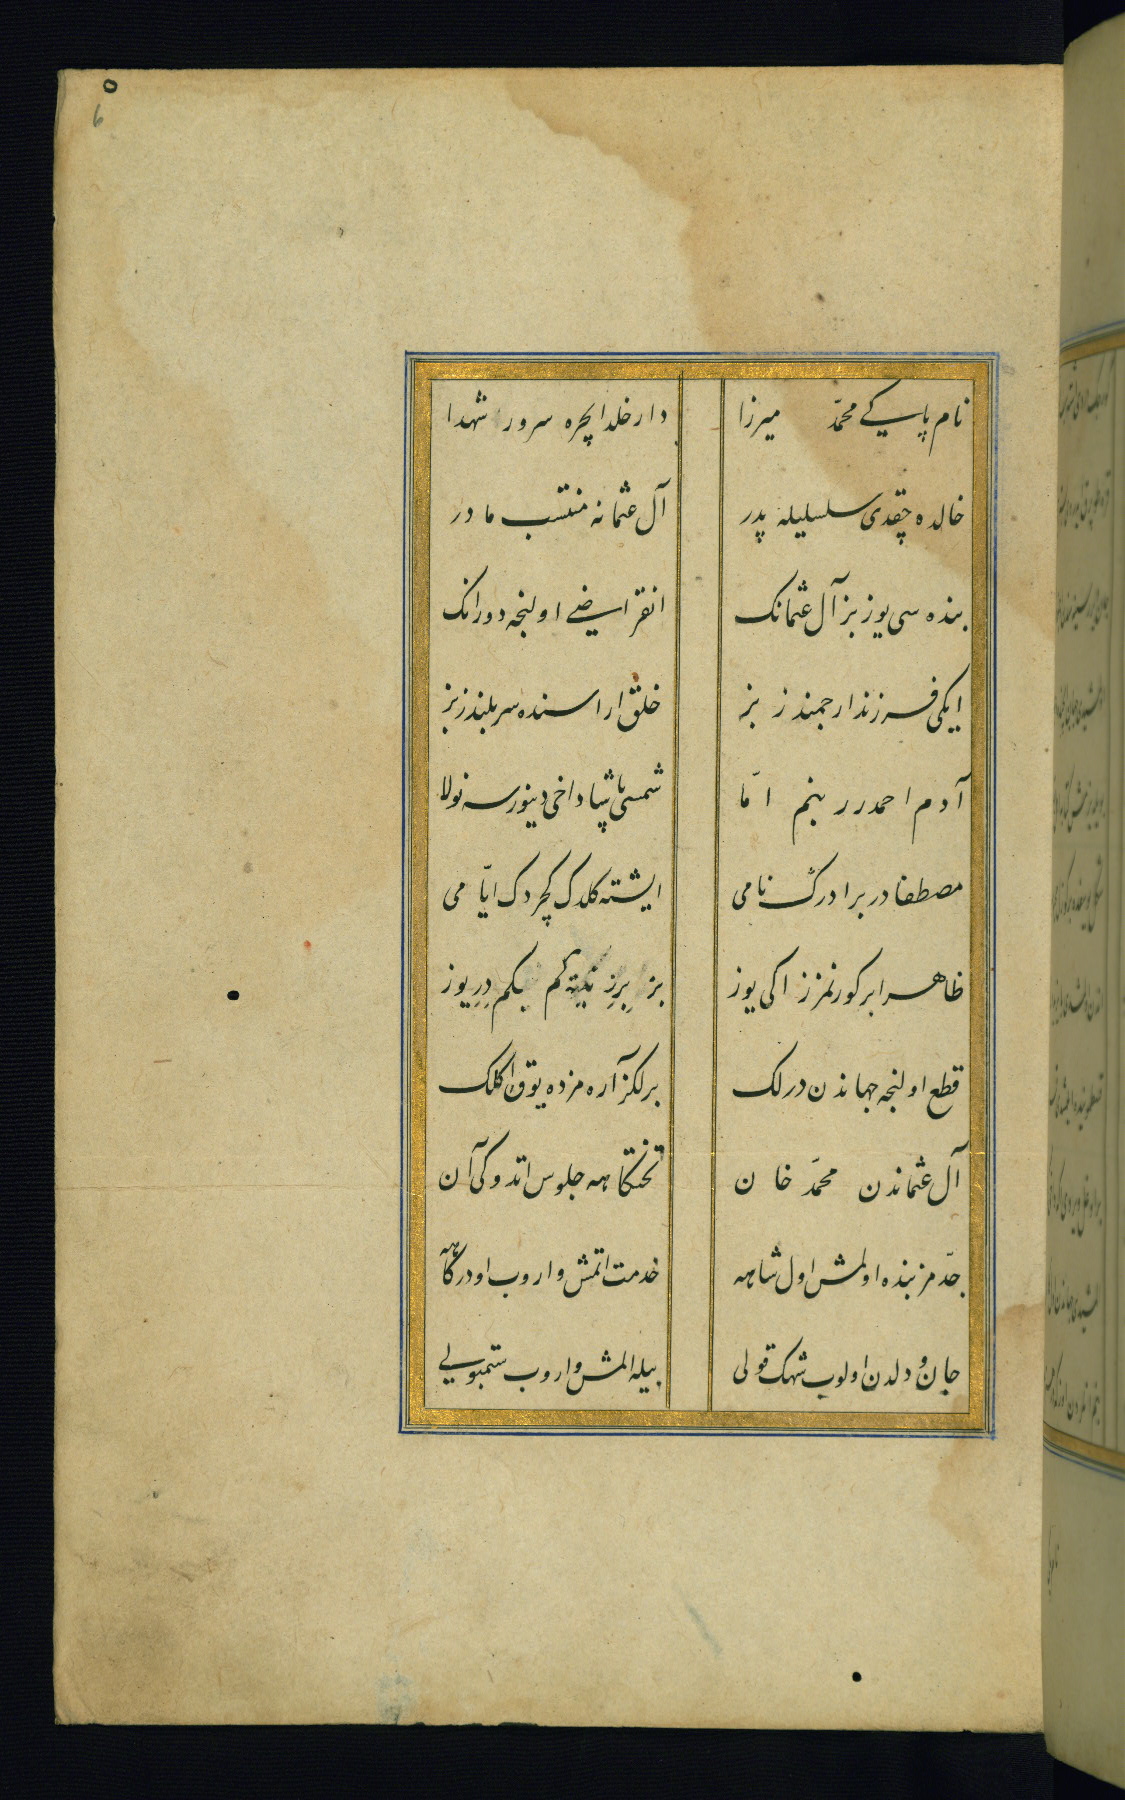 نام پاکی محمّد میرزا دار خلد ایچره سرور شهدا
خالده چقدی سلسلیله پدر آل عثمانه منتسب مادر
بنده سی یوز بز آل عثمانک انقراضی اولنجه دورانک
ایکی فرزند ارجمندز بز خلق اراسنده سربلندز بز
آدم احمددر بنم امّا شمسی پاشا داخی دینورسه نولا
مصطفا در برادرک نامی ایشته کلدک کچردک ایّامی
ظاهرا بر کورنمزز اکی یوز بز برز نیته کم بکم درِ یوز
قطع اولنجه جهاندن درلک برلکز آره مزده یوق اکلک
آل عثماندن محمّد خان تختگاهه جلوس اتدوکی آن
جدّمز بنده اولمش اول شاهه خدمت اتمش واروب او درگاهه
جان و دلدن اولوب شهک قولی بیله المش واروب ستمبولی